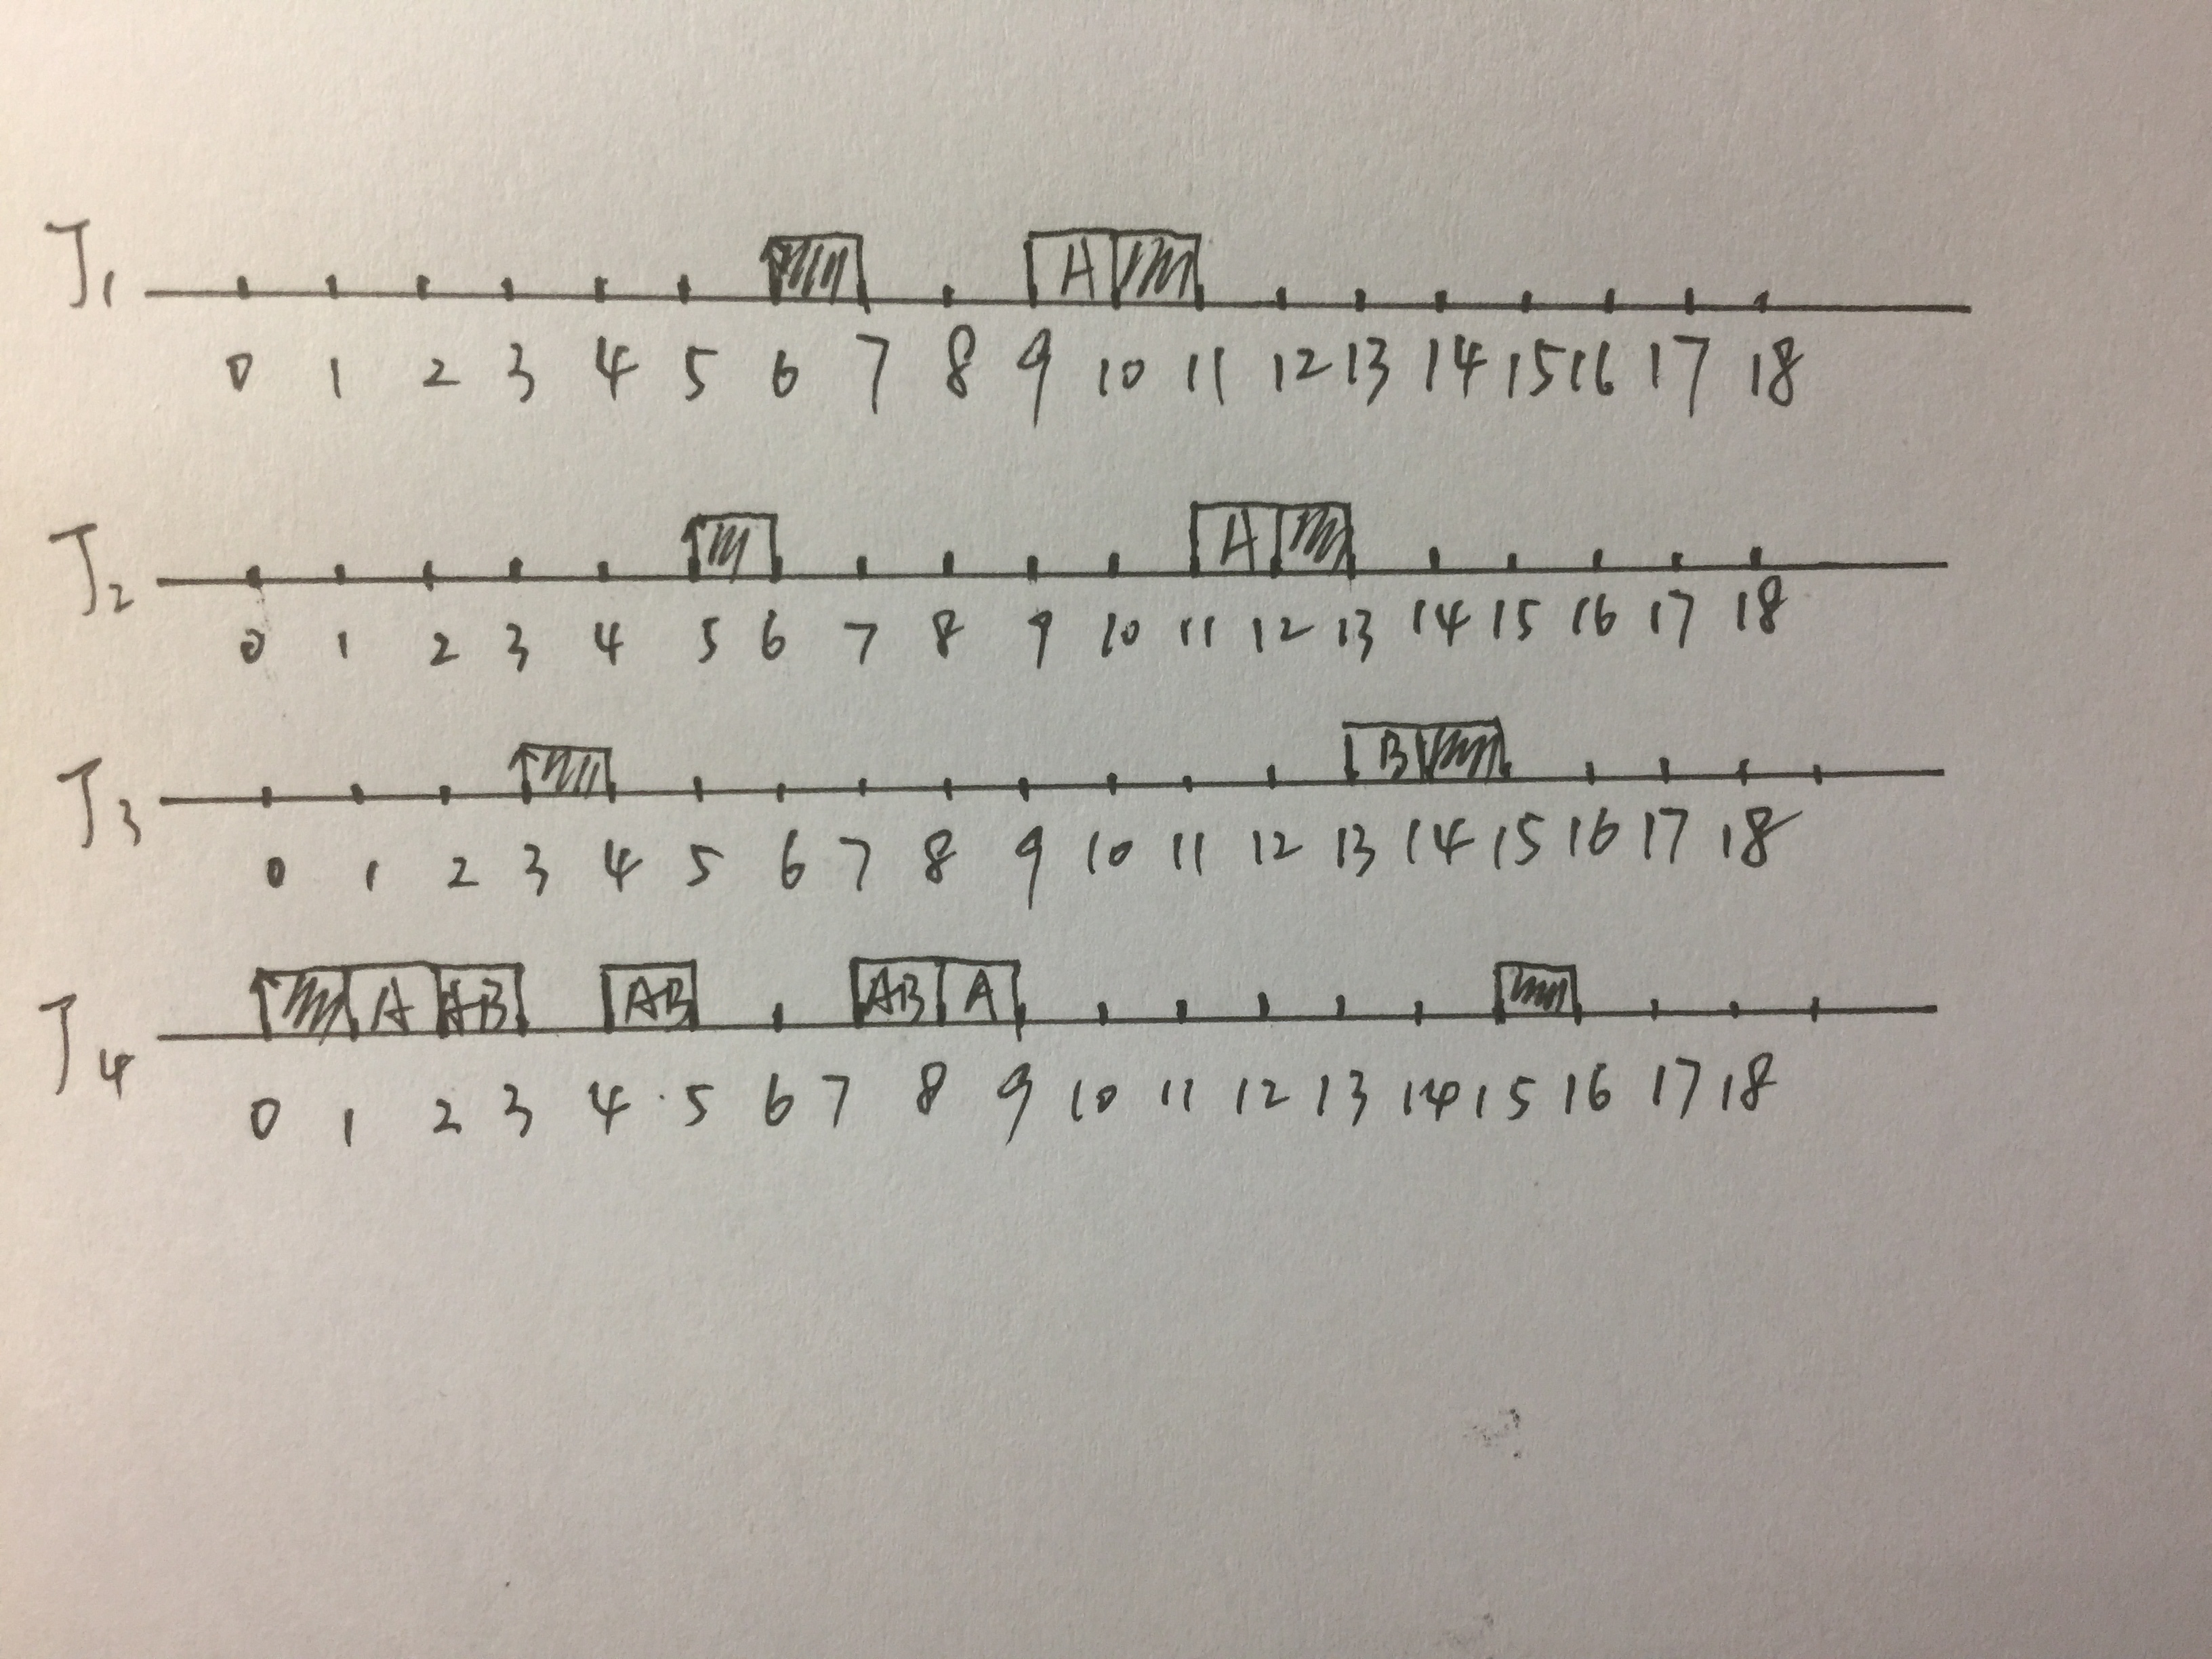 J1 A
0 1 2 3 4 5 6 7 8 9 10 11 12 13 14 15 16 17 18
J2 A
0 1 2 3 4 5 6 7 8 9 10 11 12 13 14 15 16 17 18
J3 B
0 1 2 3 4 5 6 7 8 9 10 11 12 13 14 15 16 17 18
J4 A AB AB AB A
0 1 2 3 4 5 6 7 8 9 10 11 12 13 14 15 16 17 18